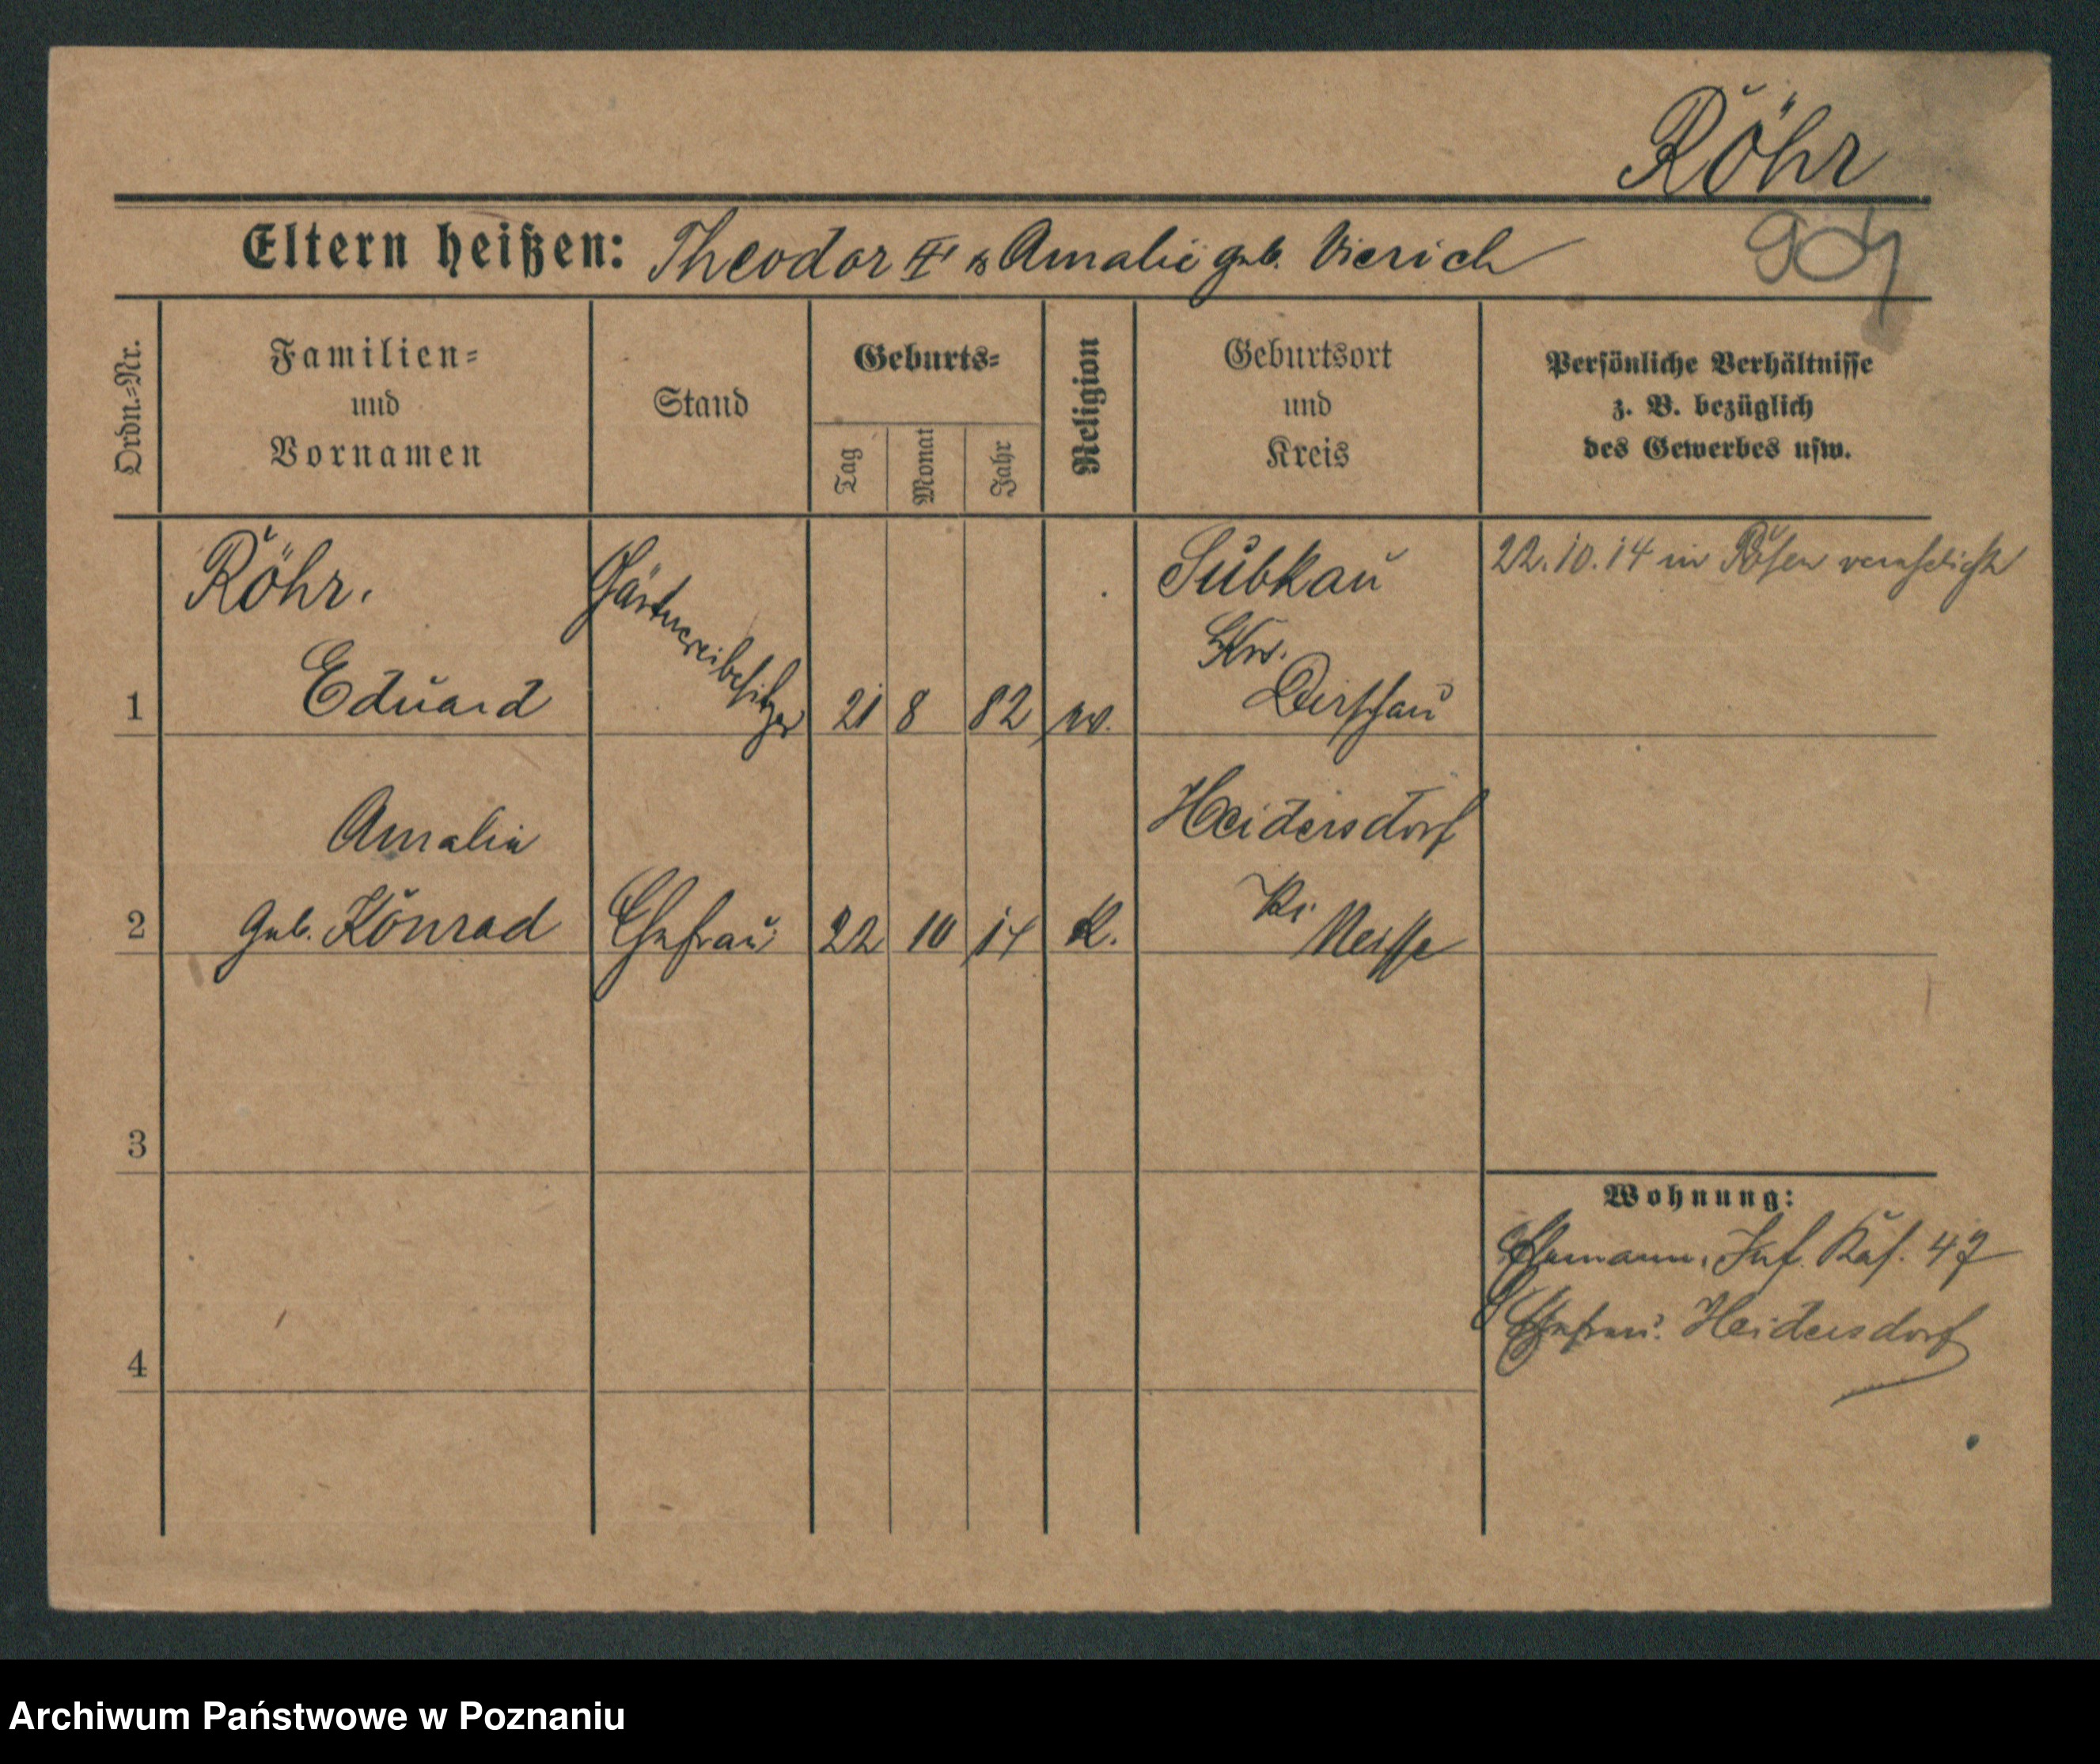 Röhr
Eltern heißen: Theodor II u Amalie geb. Vierich
Ordn.=Nr.
Familien=
und
Vornamen
Stand
Geburts=
Tag
Monat
Jahr
Religion
Geburtsort
und
Kreis
Persönliche Verhältnisse
z. B. bezüglich
des Gewerbes usw.
1
Röhr.
Eduard
Gärtnereibesitzer
21 8 82
Subkau
Krs.
Dirschau
22.10.14 in Posen verehelicht
2
Amalie
geb. Konrad
Ehefrau
22 10 14
K.
Heidersdorf
Kr.
Neisse
3
4
Wohnung:
Ehemann, Inf. Kas. 47
Ehefrau: Heidersdorf
Archiwum Państwowe w Poznaniu